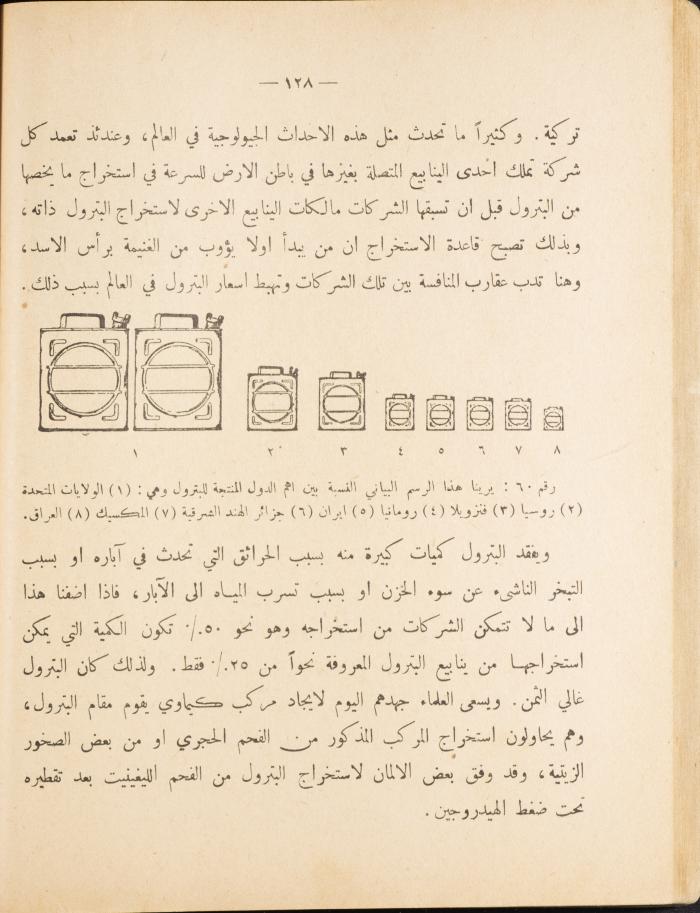 — ١٢٨ —
تركية . وكثيراً ما تحدث مثل هذه الاحداث الجيولوجية في العالم ، وعندئذ تعمد كل
شركة تملك احدى الينابيع المتصلة بغيرها في باطن الارض للسرعة في استخراج ما يخصها
من البترول قبل ان تسبقها الشركات مالكات الينابيع الاخرى لاستخراج البترول ذاته ،
وبذلك تصبح قاعدة الاستخراج ان من يبدأ اولا يؤوب من الغنيمة برأس الاسد ،
وهنا تدب عقارب المنافسة بين تلك الشركات وتهبط اسعار البترول في العالم بسبب ذلك .
١ ٢ ٣ ٤ ٥ ٦ ٧ ٨
رقم ٦٠ : يرينا هذا الرسم البياني النسبة بين اهم الدول المنتجة للبترول وهي : (١) الولايات المتحدة
(٢) روسيا (٣) فنزويلا (٤) رومانيا (٥) ايران (٦) جزائر الهند الشرقية (٧) المكسيك (٨) العراق.
ويفقد البترول كميات كبيرة منه بسبب الحرائق التي تحدث في آباره او بسبب
التبخر الناشىء عن سوء الخزن او بسبب تسرب المياه الى الآبار ، فاذا اضفنا هذا
الى ما لا تتمكن الشركات من استخراجه وهو نحو ٥٠./· تكون الكمية التي يمكن
استخراجها من ينابيع البترول المعروفة نحواً من ٢٥./· فقط . ولذلك كان البترول
غالي الثمن . ويسعى العلماء جهدهم اليوم لايجاد مركب كيماوي يقوم مقام البترول ،
وهم يحاولون استخراج المركب المذكور من الفحم الحجري او من بعض الصخور
الزيتية ، وقد وفق بعض الالمان لاستخراج البترول من الفحم الليغنيت بعد تقطيره
تحت ضغط الهيدروجين .